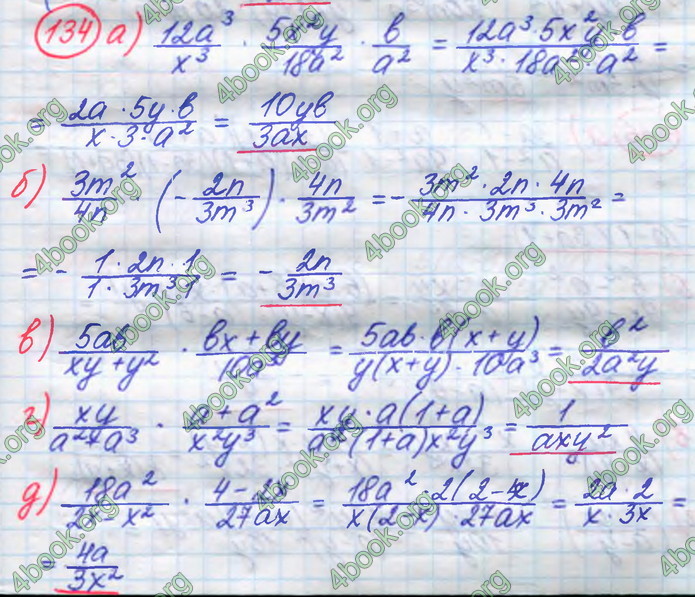 134 а) 12a³/x³ · 5x²y/18a² · b/a² = 12a³·5x²y·b/x³·18a²·a² =
= 2a·5y·b/x·3·a² = 10yb/3ax
б) 3m²/4n · (-2n/3m³) · 4n/3m² = -3m²·2n·4n/4n·3m³·3m² =
= -1·2n·1/1·3m³·1 = -2n/3m³
в) 5ab/xy+y² · bx+by/10a³ = 5ab·b(x+y)/y(x+y)·10a³ = b²/2a²y
г) xy/a²+a³ · a+a²/x²y³ = xy·a(1+a)/a²(1+a)x²y³ = 1/axy²
д) 18a²/2x-x² · 4-2x/27ax = 18a²·2(2-x)/x(2-x)·27ax = 2a·2/x·3x =
= 4a/3x²
4book.org